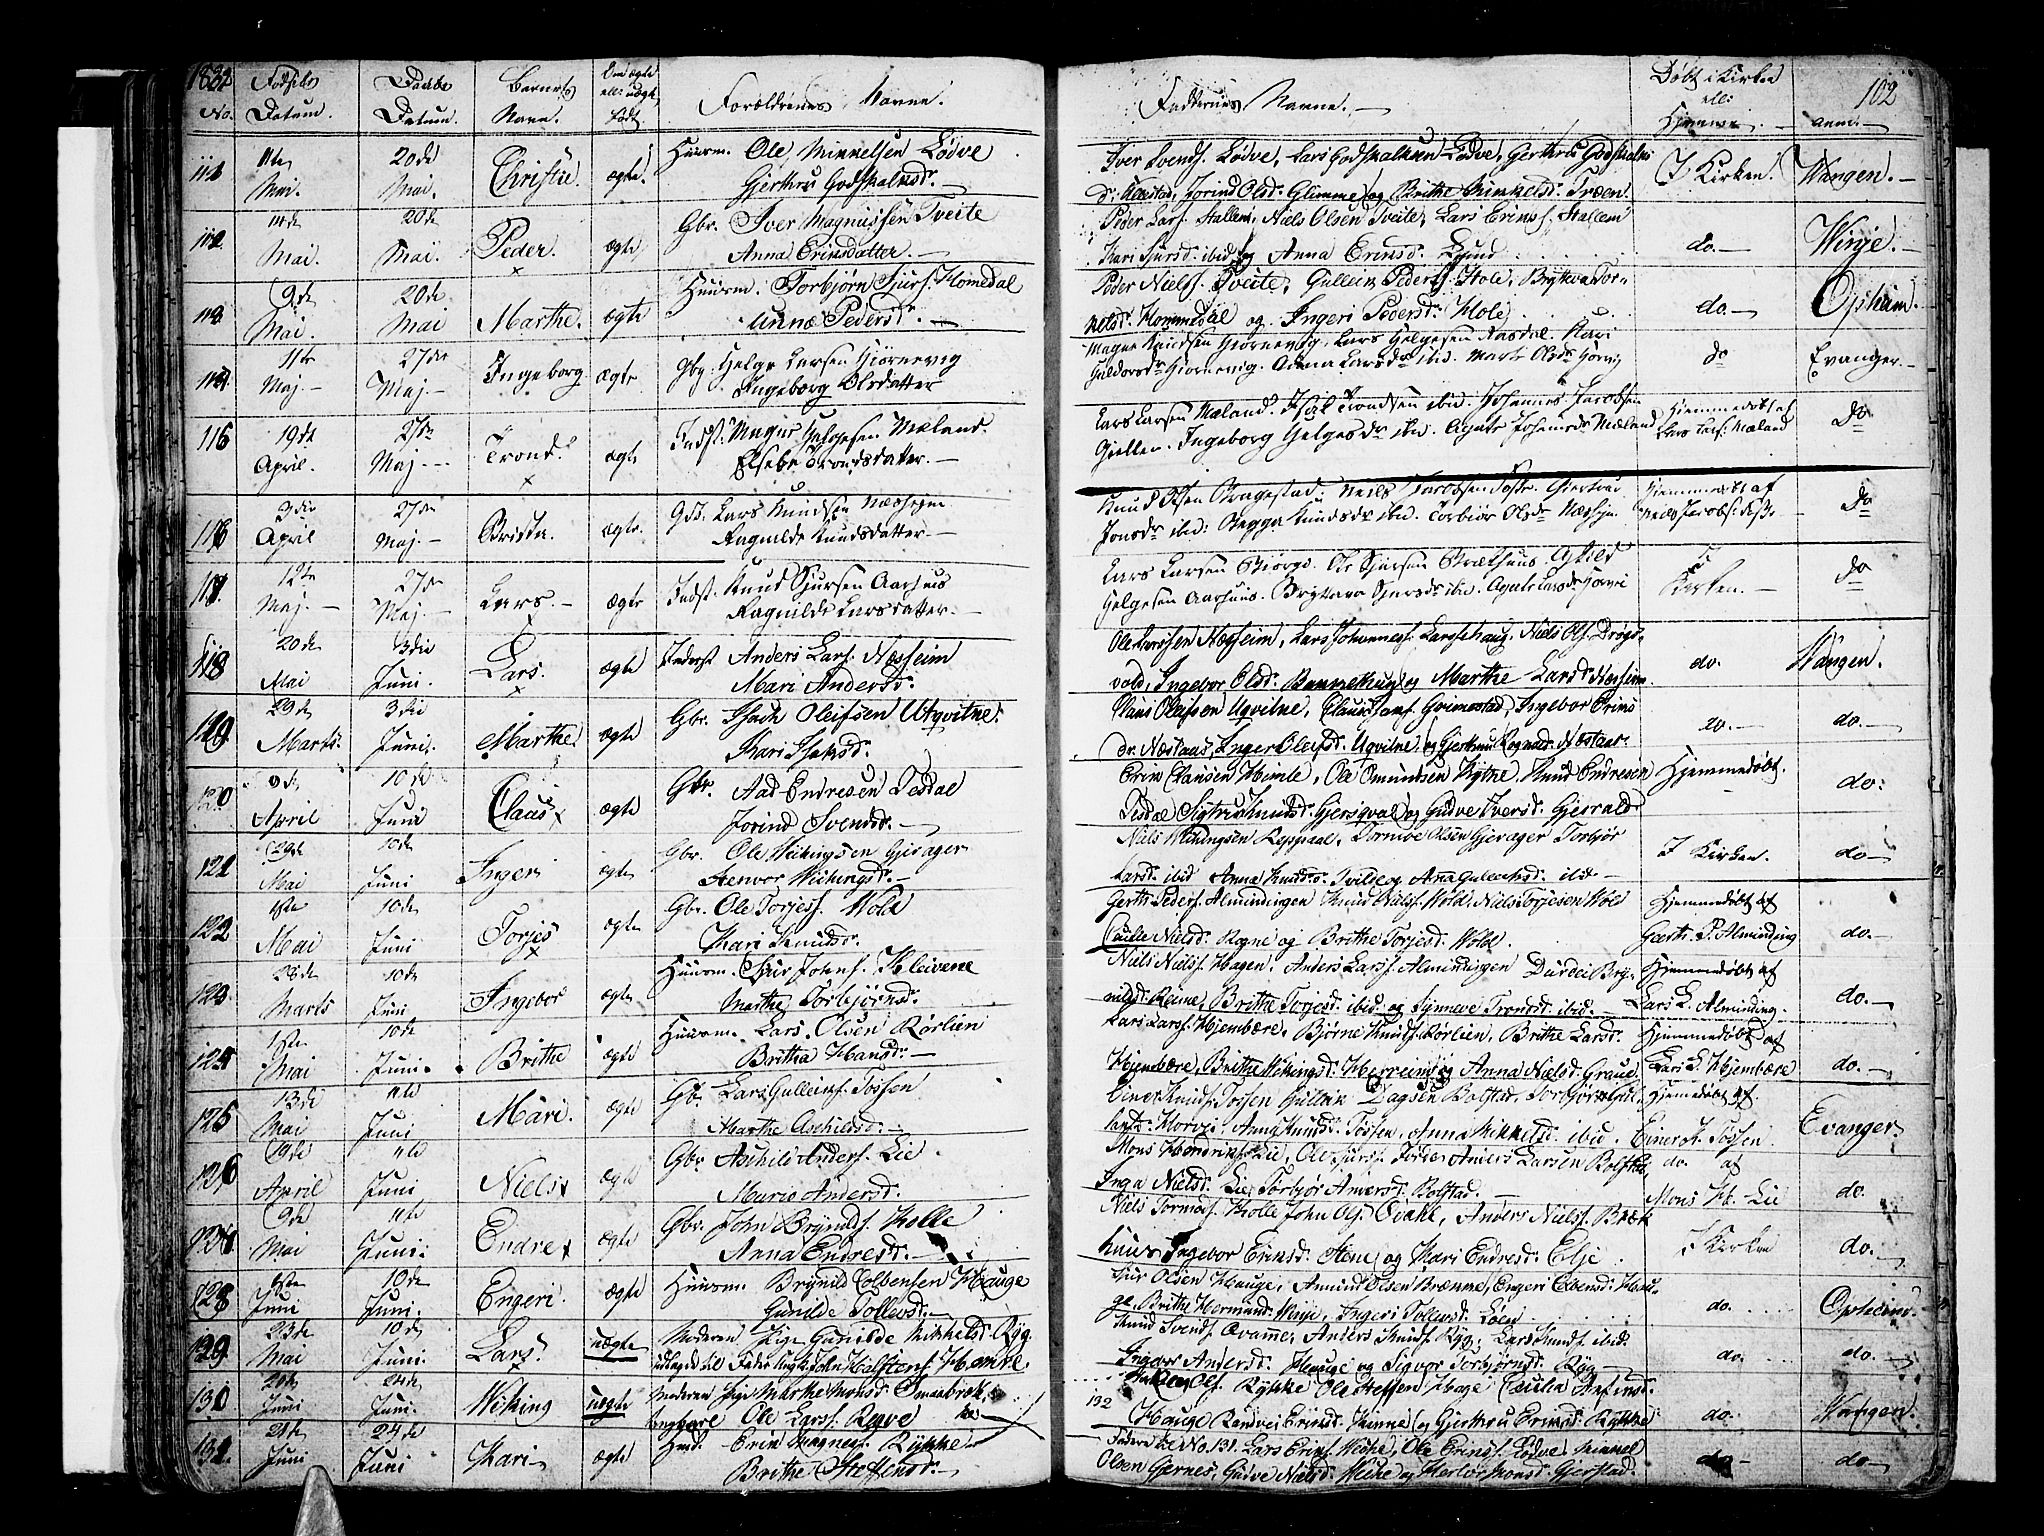 1832
No. Fødsels Datum. Daabs Datum. Barnets Navn. Om ægte ell: uægt. født. Forældrenes Navne.
Faddernes Navne. Døbt i Kirken ell: Hjemme. anm. 102
111 11te Mai. 20de Mai. Christie. ægte. Huusm. Ole Mikkelsen Lødve
Gjerthru Godskalksdr.
Iver Svends. Lødve, Lars Godskalksen Lødve, Gerthru Godskalks
Jorind Olsdr. Glimme og Brithe Mikkelsdr. Træen. I Kirken. Wangen.
112 14de Mai. 20de Mai. Peder. ægte Gbr. Iver Magnussen Tveite
Anna Erinsdatter.
Peder Lars. Hallem, Niels Olsen Tveite, Lars Erins. Hallem
Kari Siursd. ibid og Anna Erinsd. Lund do. Winje.
113 9de Mai. 20de Mai Marthe. ægte Huusm. Torbjørn Sjurs. Homedal
Anna Pedersd.
Peder Niels. Tveite, Gullein Peders. Hole, Brytteva Tor-
kelsd. Hommedal og Ingeri Pedersd. Hole do. Opheim.
114 11te Maj. 27de Maj. Ingeborg ægte Gbr: Helge Larsen Hiørnevig
Ingeborg Olsdatter
Magne Knudsen Giørnevig, Lars Helgesen Rasdal. Kari
Hiørnevig. Anna Larsdr ibid. Marte Olsdr do Evanger.
116 19de April. 27de Maj. Trond. ægte Indst: Magne Helgesen Mæland.
Elsebe Trondsdatter.
Lars Larsen Mæland. Isak Trondsen ibid. Johannes Jacobsen
Giellen. Ingeborg Helgesdr ibid. Agate Johansdr Mæland Hjemmedøbt af Lars Lars: Mæland do
116 3die April 27de Maj. Brita. ægte. Gbr. Lars Knudsen Næsheim
Ragnilde Knudsdatter.
Knud Olsen Bragestad: Niels Jacobsen
Jonsdr ibid: Knudsdr ibid. Torbiør Olsdr Næshjm. Hjemmedøbt af Niels Jacobs: do
117. 12te Maj. 27de Maj Lars. ægte Indst. Knud Sjursen Aarhuus
Ragnilde Larsdatter.
Lars Larsen Biørgo. Ole Sjursen Brækhuus. Askild
Helgesen Aarhuus. Brytteva Sjursdr ibid. Agate Larsdr Horvei I Kirken. do
118 20de Mai 3die Juni. Lars. ægte Inderst Anders Lars. Næsheim
Mari Andersd.
Ole Larssen Næsheim, Lars Johannes. Larsehaug, Niels Ols. Drøgs-
vold, Ingebor Olsd. og Marthe Larsd. Næsheim. do. Wangen.
119. 29de Marts. 3die Juni. Marthe. ægte Gbr. Isach Oleifsen Uqvitne.
Kari Isaksd.
Claus Olafsen Uqvitne, Grimestad, Ingebor Erins
dr. Næstaas, Inger Oleifsd. Uqvitne og Gjerthru Rognaldr. Næstaas. do. do.
120 April 10de Juni Claus ægte Gbr. Aad Endresen Tesdal
Jorind Svensd.
Erin Clausen Himle, Ole Omundsen Kytne, Knud Endresen
Tesdal Sigtru Knudsd. Gjersqval og Gudve Iversd. Gjerald Hjemmedøbt. do:
121 29de Mai 10de Juni Inger ægte Gbr. Ole Wikingsen Gjerager
Stenvor Wikingsd.
Niels Wikingsen Reppaal, Tormoe Olsen Gjerager Torbjør
Larsd. ibid Anna Knudsd. Tvilde og Anna Gulleiksd. ibid I Kirken. do
122 1ste Mai 10de Juni Torjes ægte Gbr. Ole Torjess. Wold
Kari Knudsd.
Gerth. Peders. Almindingen Knud Niels. Wold, Niels Torjesen Wold
Cecilie Nielsd. Rogne og Brithe Torjesd. Wold. Hjemmedøbt af Gerth. P. Alminding do.
123. 28de Marts 10de Juni Ingebor ægte Huusm. Siur Johns. Kleivene
Marthe Torbjørnsd.
Niels Niels. Hagen, Anders Lars. Almindingen Durdei Bry-
nilsd. Reime, Brithe Torjesd. ibid. og Synneve Tronsd. ibid. Hjemmedøbt af Lars L. Alminding. do.
124 1ste Mai 10de Juni. Brithe ægte Huusm. Lars Olsen Rørlien
Britha Hansd.
Lars Lars. Hjembære, Bjørne Knuds. Rørlien, Brithe Larsd.
Hjembære, Brithe Wikingsd. Herreim og Anna Nielsd. Graue Hjemmedøbt af Lars L. Hjembære do.
125 13de Mai 11te Juni Mari. ægte Gbr. Lars Gulleiks. Tossen
Marthe Aschilsd.
Einer Knuds. Tossen Gulleik Dagsen Bolstad, Torbjør
Horvei, Anna Knudsd. Tossen, Anna Mikkelsd. ibid. Hjemmedøbt af. Einer K. Tossen. Evanger.
126 19de April 11te Juni Niels ægte Gbr Aschild Anders. Lie
Marie Andersd.
Mons Hendriks. Lie, Ole Sjurs. Anders Larsen Bolstad
Inga Nielsd. Lie, Torbjør Andersd. Bolstad. do. af Mons H. Lie do.
127 9de Mai 11te Juni. Endre ægte Gbr. John Brynilds. Kolle
Anna Endresd.
Niels Tormods. Kolle John Ols. Anders Niels. Bræk
huus Ingebor Erinsd. og Kari Endresd. I Kirken do.
128 1ste Juni 10de Juni. Engeri ægte Huusm. Brynild Colbensen Hauge
Gunilde Tollevsd.
Siur Olsen Hauge, Amund Olsen Brænne, Engeri Colbensd. Hau-
ge, Brithe Hermund. Winje, Ingeri Tollevsd. Løen do. Opheim.
129 23de Mai 10de Juni. Lars. uægte Moderen Pige Gunilde Mikkelsd. Ryg
udlagd til Fader Ungk. John Halstens. Homve.
Knud Svends. Qvamme, Anders Knuds. Ryg, Lars Knuds. ibid.
Ingebor Andersd. Hauge og Sigvor Torbjørnsd. Ryg do. do.
130 20de Juni 24de Juni. Wiking uægte Moderen Pige Marthe Monsd. Smaabræk,
Ungkare Ole Lars. Rogve
Ols. Rykke Ole Steffen Hage Cecilia Anfinsd.
132 Hauge Randvei Erinsd. Hønne og Gjerthru Erinsd. Rykke do. Wangen.
131. 21de Juni 24de Juni Kari ægte Hmd. Erin Magnes. Rykke
Brithe Steffensd.
Faddere til No. 131. Lars Erins. Wiche, Ole Erins. Lødve, Mikkel
Olsen Gjernes, Gudve Nielsd. Wiche og Herlør Monsd. Gjerstad. do do